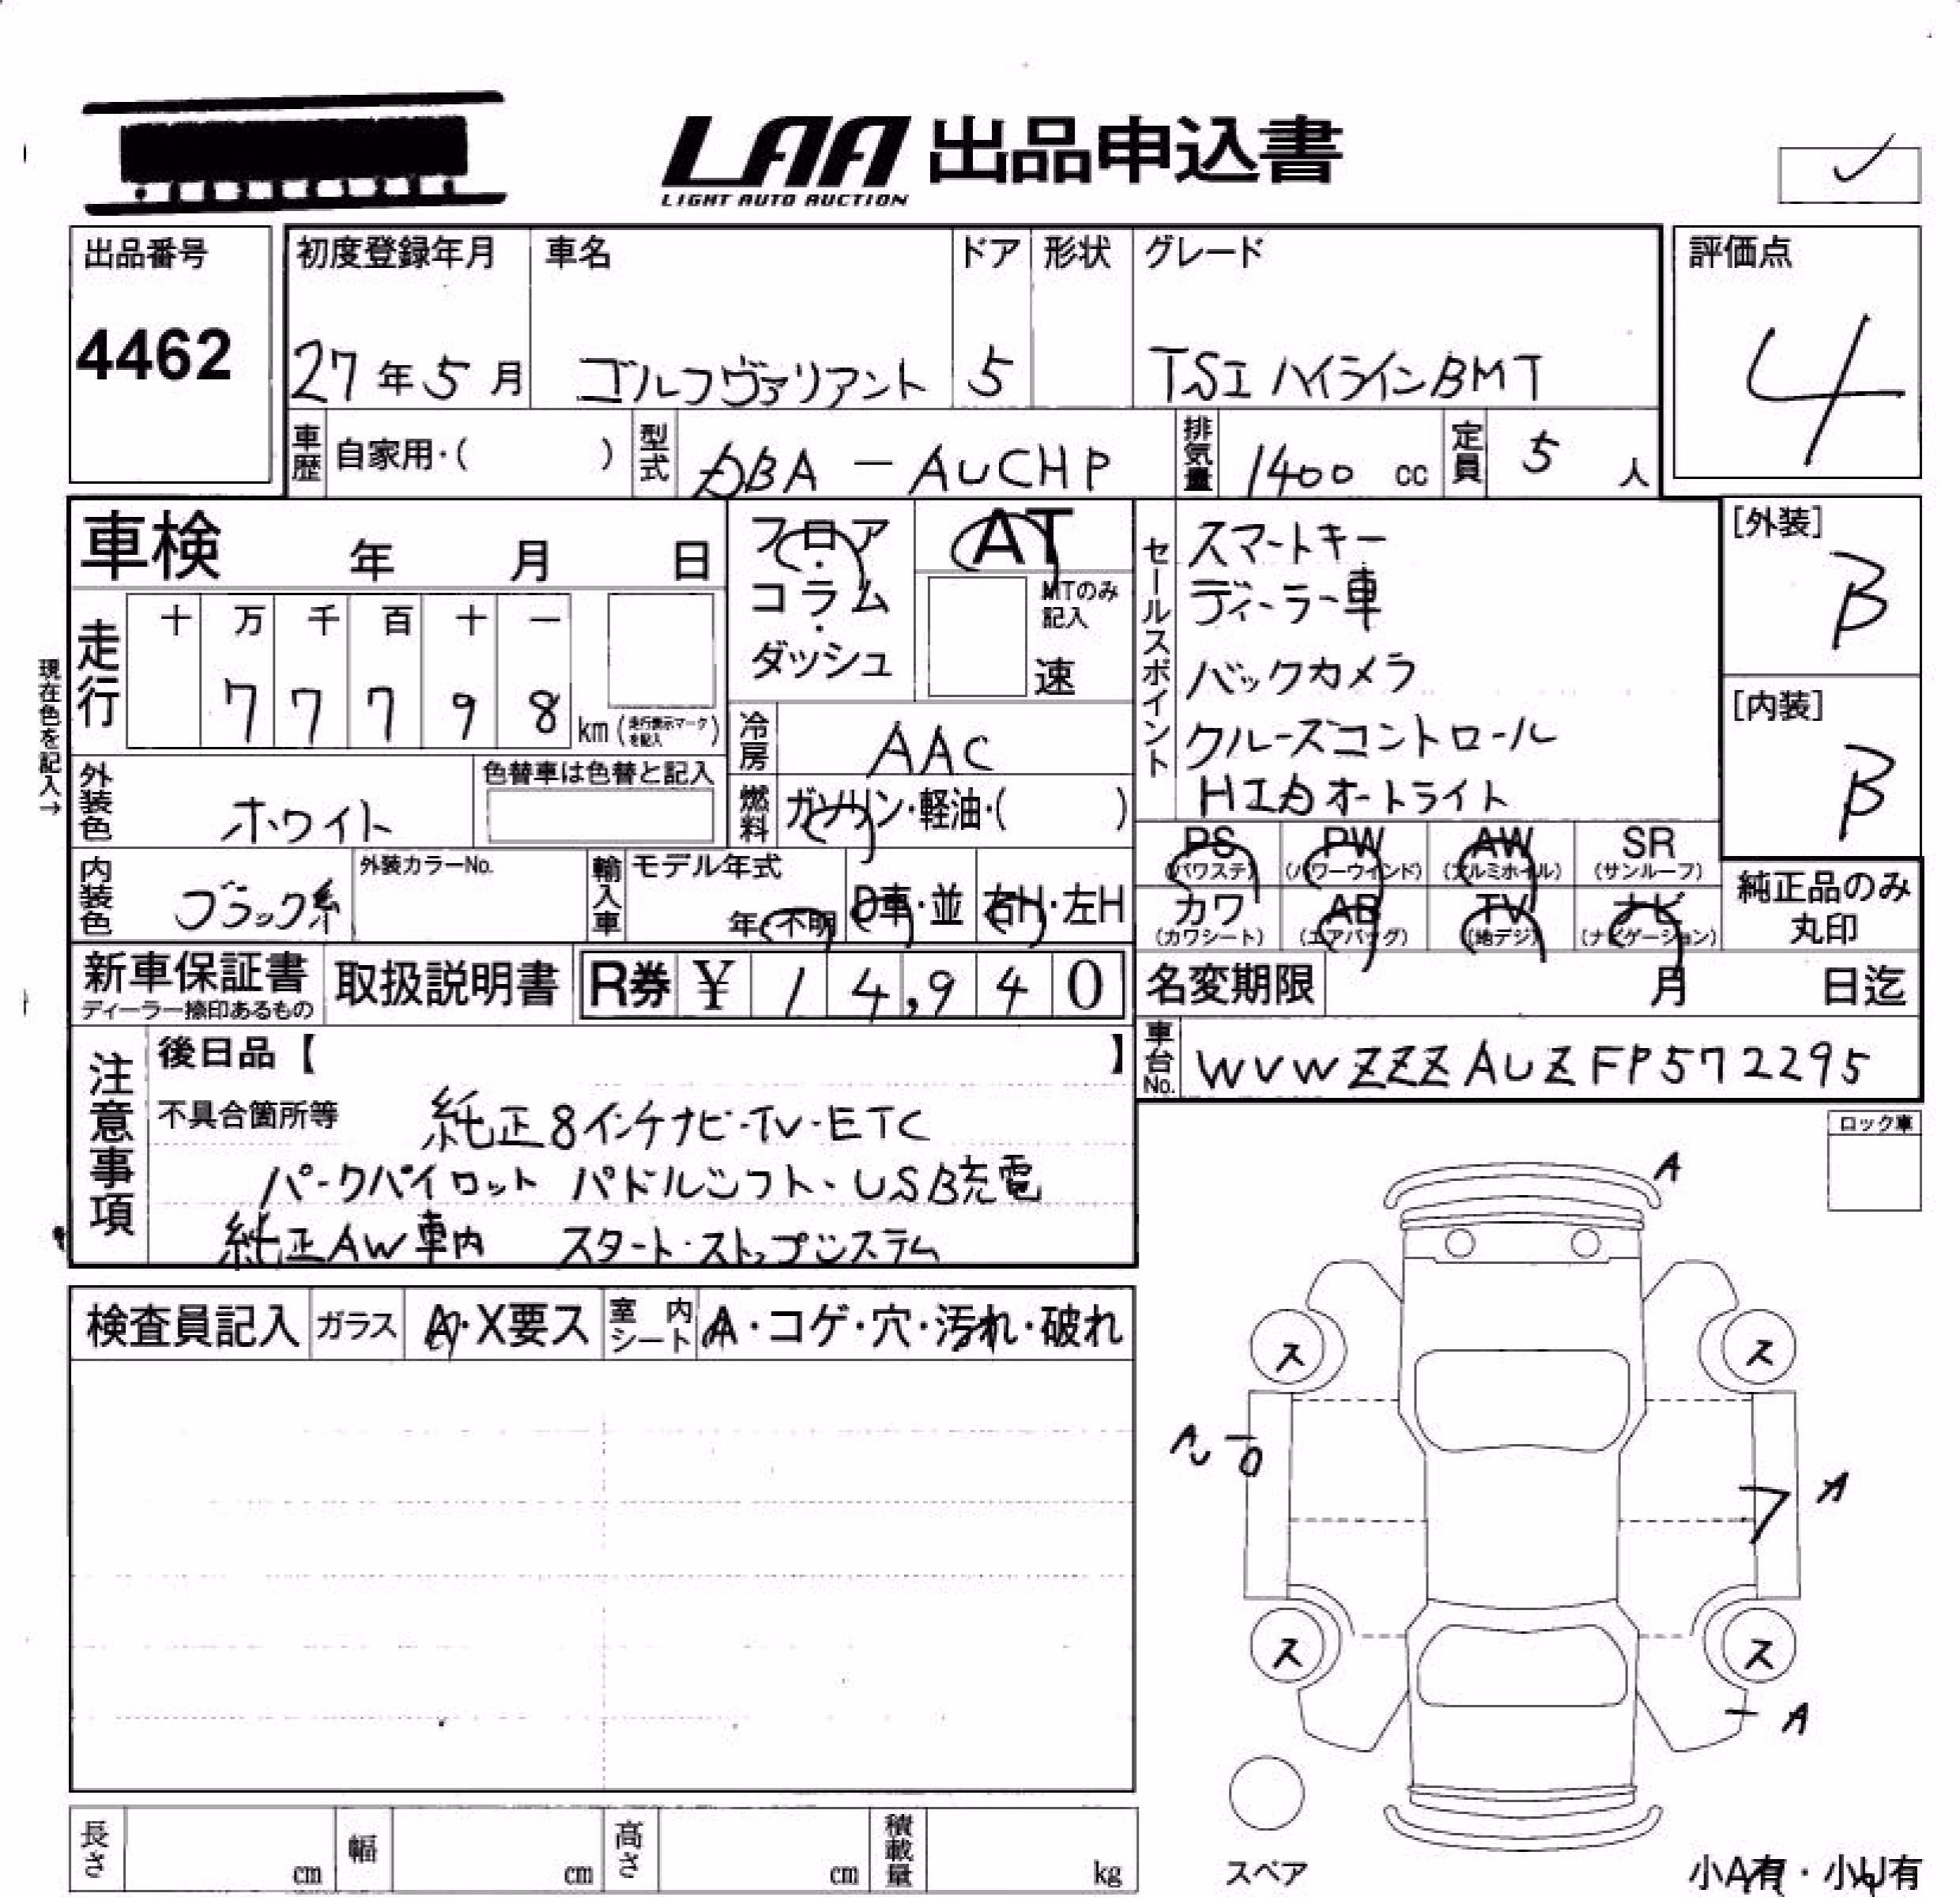 LAA 出品申込書
LIGHT AUTO AUCTION
出品番号
4462
初度登録年月
27年5月
車名
ゴルフヴァリアント
ドア
5
形状
グレード
TSI ハイラインBMT
評価点
4
車歴
自家用・( )
型式
DBA - AUCHP
排気量
1400 cc
定員
5 人
車検 年 月 日
フロア・コラム・ダッシュ
AT
MTのみ記入
速
セールスポイント
スマートキー
ディーラー車
バックカメラ
クルーズコントロール
HIDオートライト
[外装]
B
[内装]
B
現在色を記入→
走行
十 万 千 百 十 一
7 7 7 9 8
km (走行表示マークを記入)
冷房
AAC
外装色
ホワイト
色替車は色替と記入
燃料
ガソリン・軽油・( )
PS (パワステ)
PW (パワーウィンド)
AW (アルミホイル)
SR (サンルーフ)
カワ (カワシート)
AB (エアバッグ)
TV (地デジ)
ナビ (ナビゲーション)
純正品のみ丸印
内装色
ブラック系
外装カラーNo.
輸入車
モデル年式
年・不明
D車・並
右H・左H
新車保証書
ディーラー捺印あるもの
取扱説明書
R券 ¥ 14,940
名変期限 月 日迄
車台No.
WVWZZZAUZFP572295
注意事項
後日品【 】
不具合箇所等
純正8インチナビ-TV-ETC
パークパイロット パドルシフト、USB充電
純正AW車内 スタート・ストップシステム
ロック車
A
検査員記入
ガラス
A・X要ス
室内シート
A・コゲ・穴・汚れ・破れ
ス
ス
A
ス
ス
A
スペア
長さ cm
幅 cm
高さ cm
積載量 kg
小A有・小U有